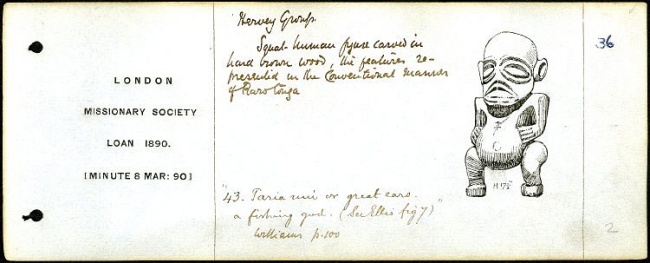 LONDON
MISSIONARY SOCIETY
LOAN 1890.
[MINUTE 8 MAR: 90]
Hervey Group
Squat human figure carved in
hard brown wood, the features re-
presented in the Conventional manner
of Rarotonga
36
H 175
"43. Taria nui or great ears.
a fishing god. (See Ellis fig 7)"
Williams p. 100
2